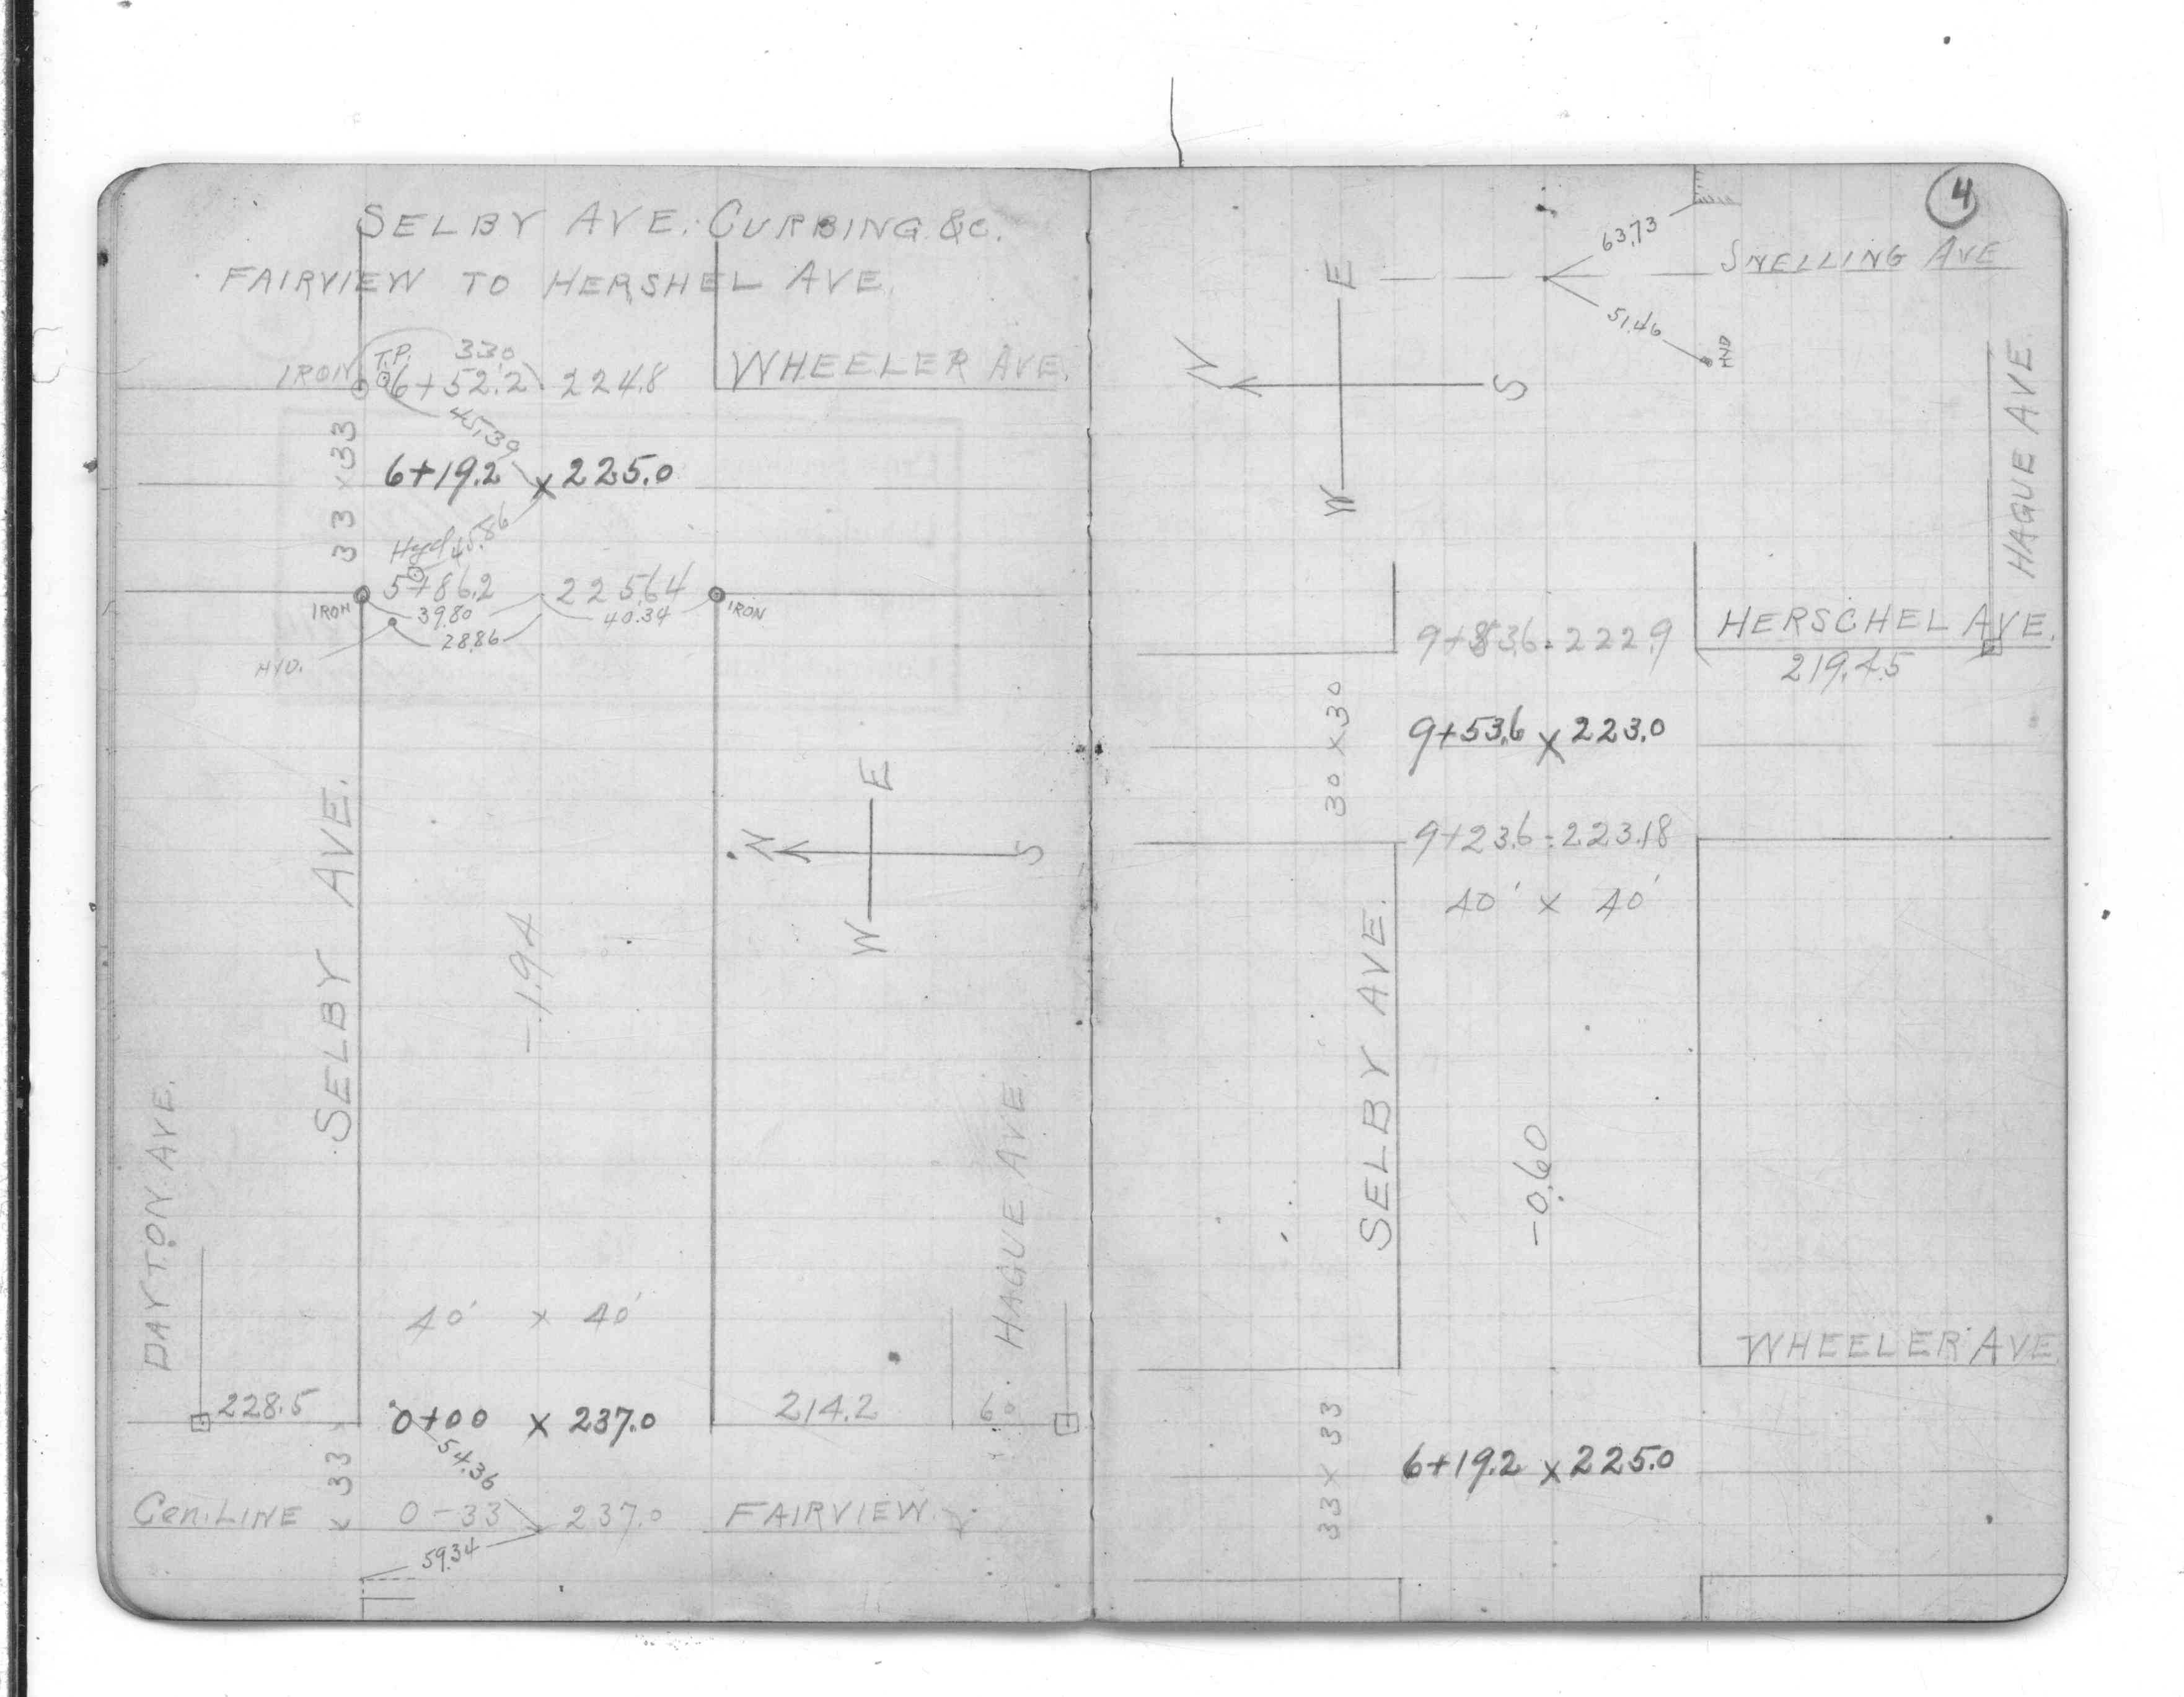 SELBY AVE. CURBING &c.
FAIRVIEW TO HERSHEL AVE.
IRON T.P. 33.0
6+52.2 224.8 WHEELER AVE.
45.30
33 x 33
6+19.2 x 225.0
Hyd 45.86
5+86.2 225.64
IRON 39.80 40.34 IRON
28.86
HYD.
N E S W
SELBY AVE.
-1.94
DAYTON AVE.
HAGUE AVE.
40' x 40'
228.5 0+00 x 237.0 214.2 60
54.36
x 33
Cen. LINE 0-33 237.0 FAIRVIEW
59.34
4
63.73
SNELLING AVE
51.46
HYD
N E S W
HAGUE AVE.
9+83.6 = 222.9 HERSCHEL AVE.
219.45
30 x 30
9+53.6 x 223.0
9+23.6 = 223.18
40' x 40'
SELBY AVE.
-0.60
WHEELER AVE
33 x 33
6+19.2 x 225.0